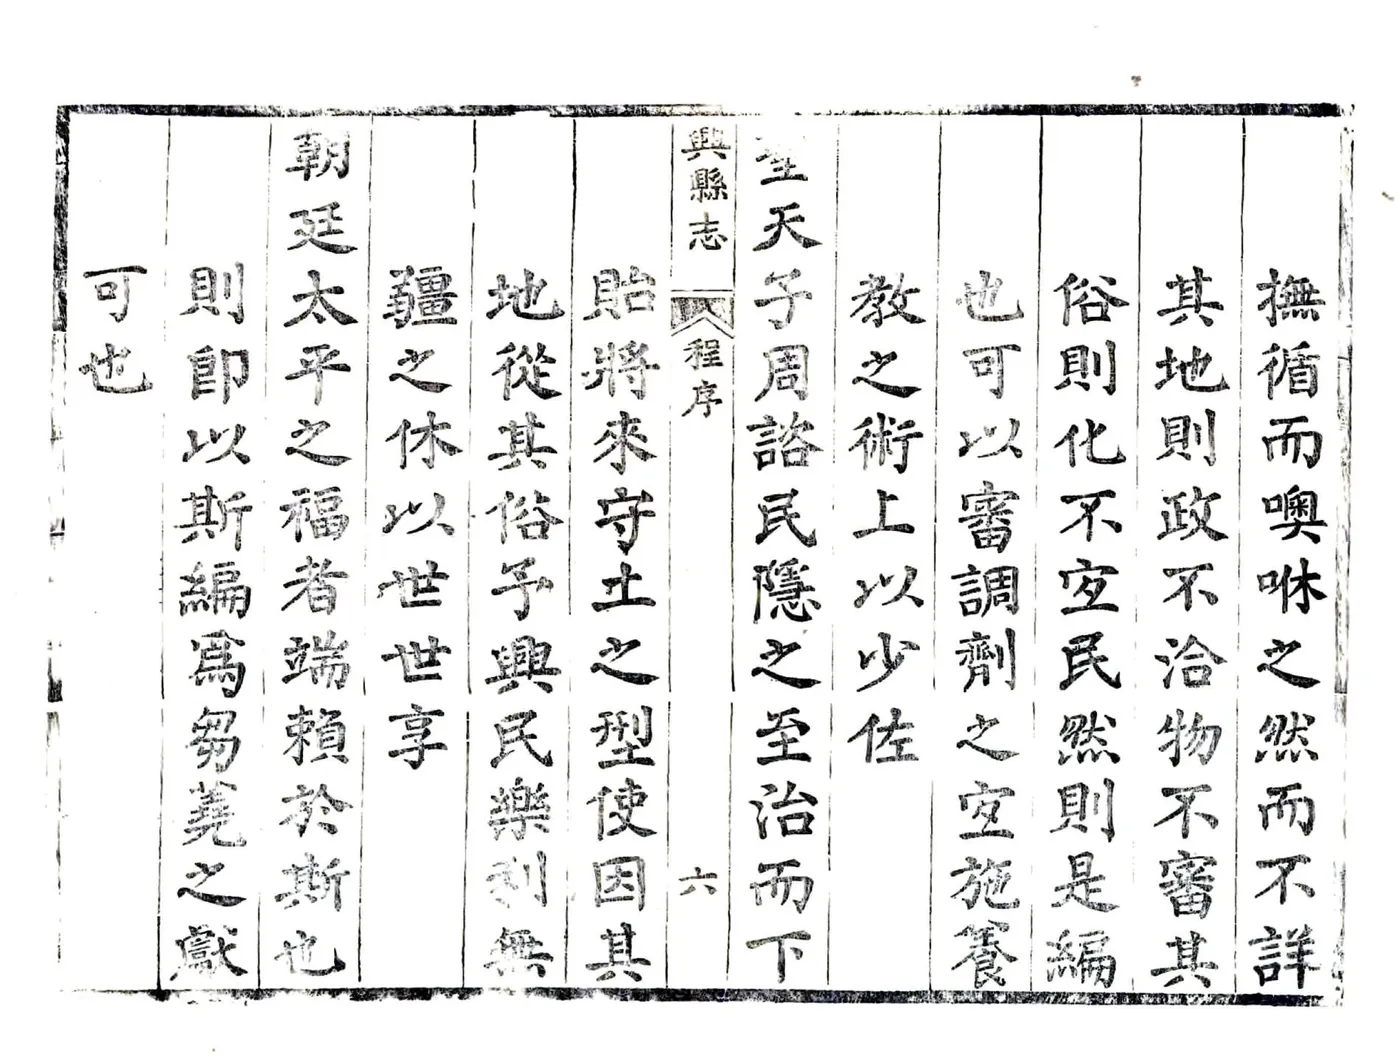 撫循而噢咻之然而不詳
其地則政不洽物不審其
俗則化不宐民然則是編
也可以審調劑之宐施養
教之術上以少佐
聖天子周諮民隱之至治而下
興縣志 程序 六
貽將來守土之型使因其
地從其俗予興民樂利無
疆之休以世世享
朝廷太平之福者端賴於斯也
則卽以斯編爲芻蕘之獻
可也